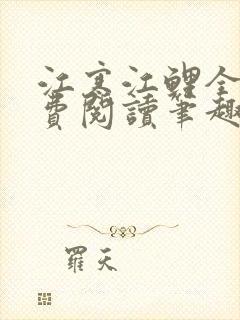 江寒江鯉全
費閱讀筆趣
羅天